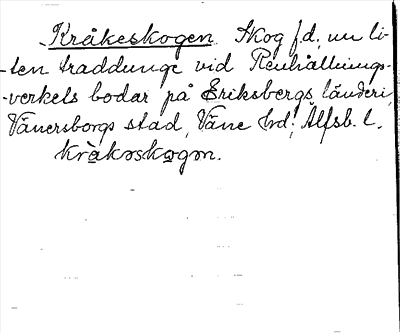 Kråkeskogen. Skog f.d., nu li-
ten träddunge vid Renhållnings-
verkets bodar på Eriksbergs länderi,
Vänersborgs stad, Väne hd, Älfsb. l.
kråkəskogən.